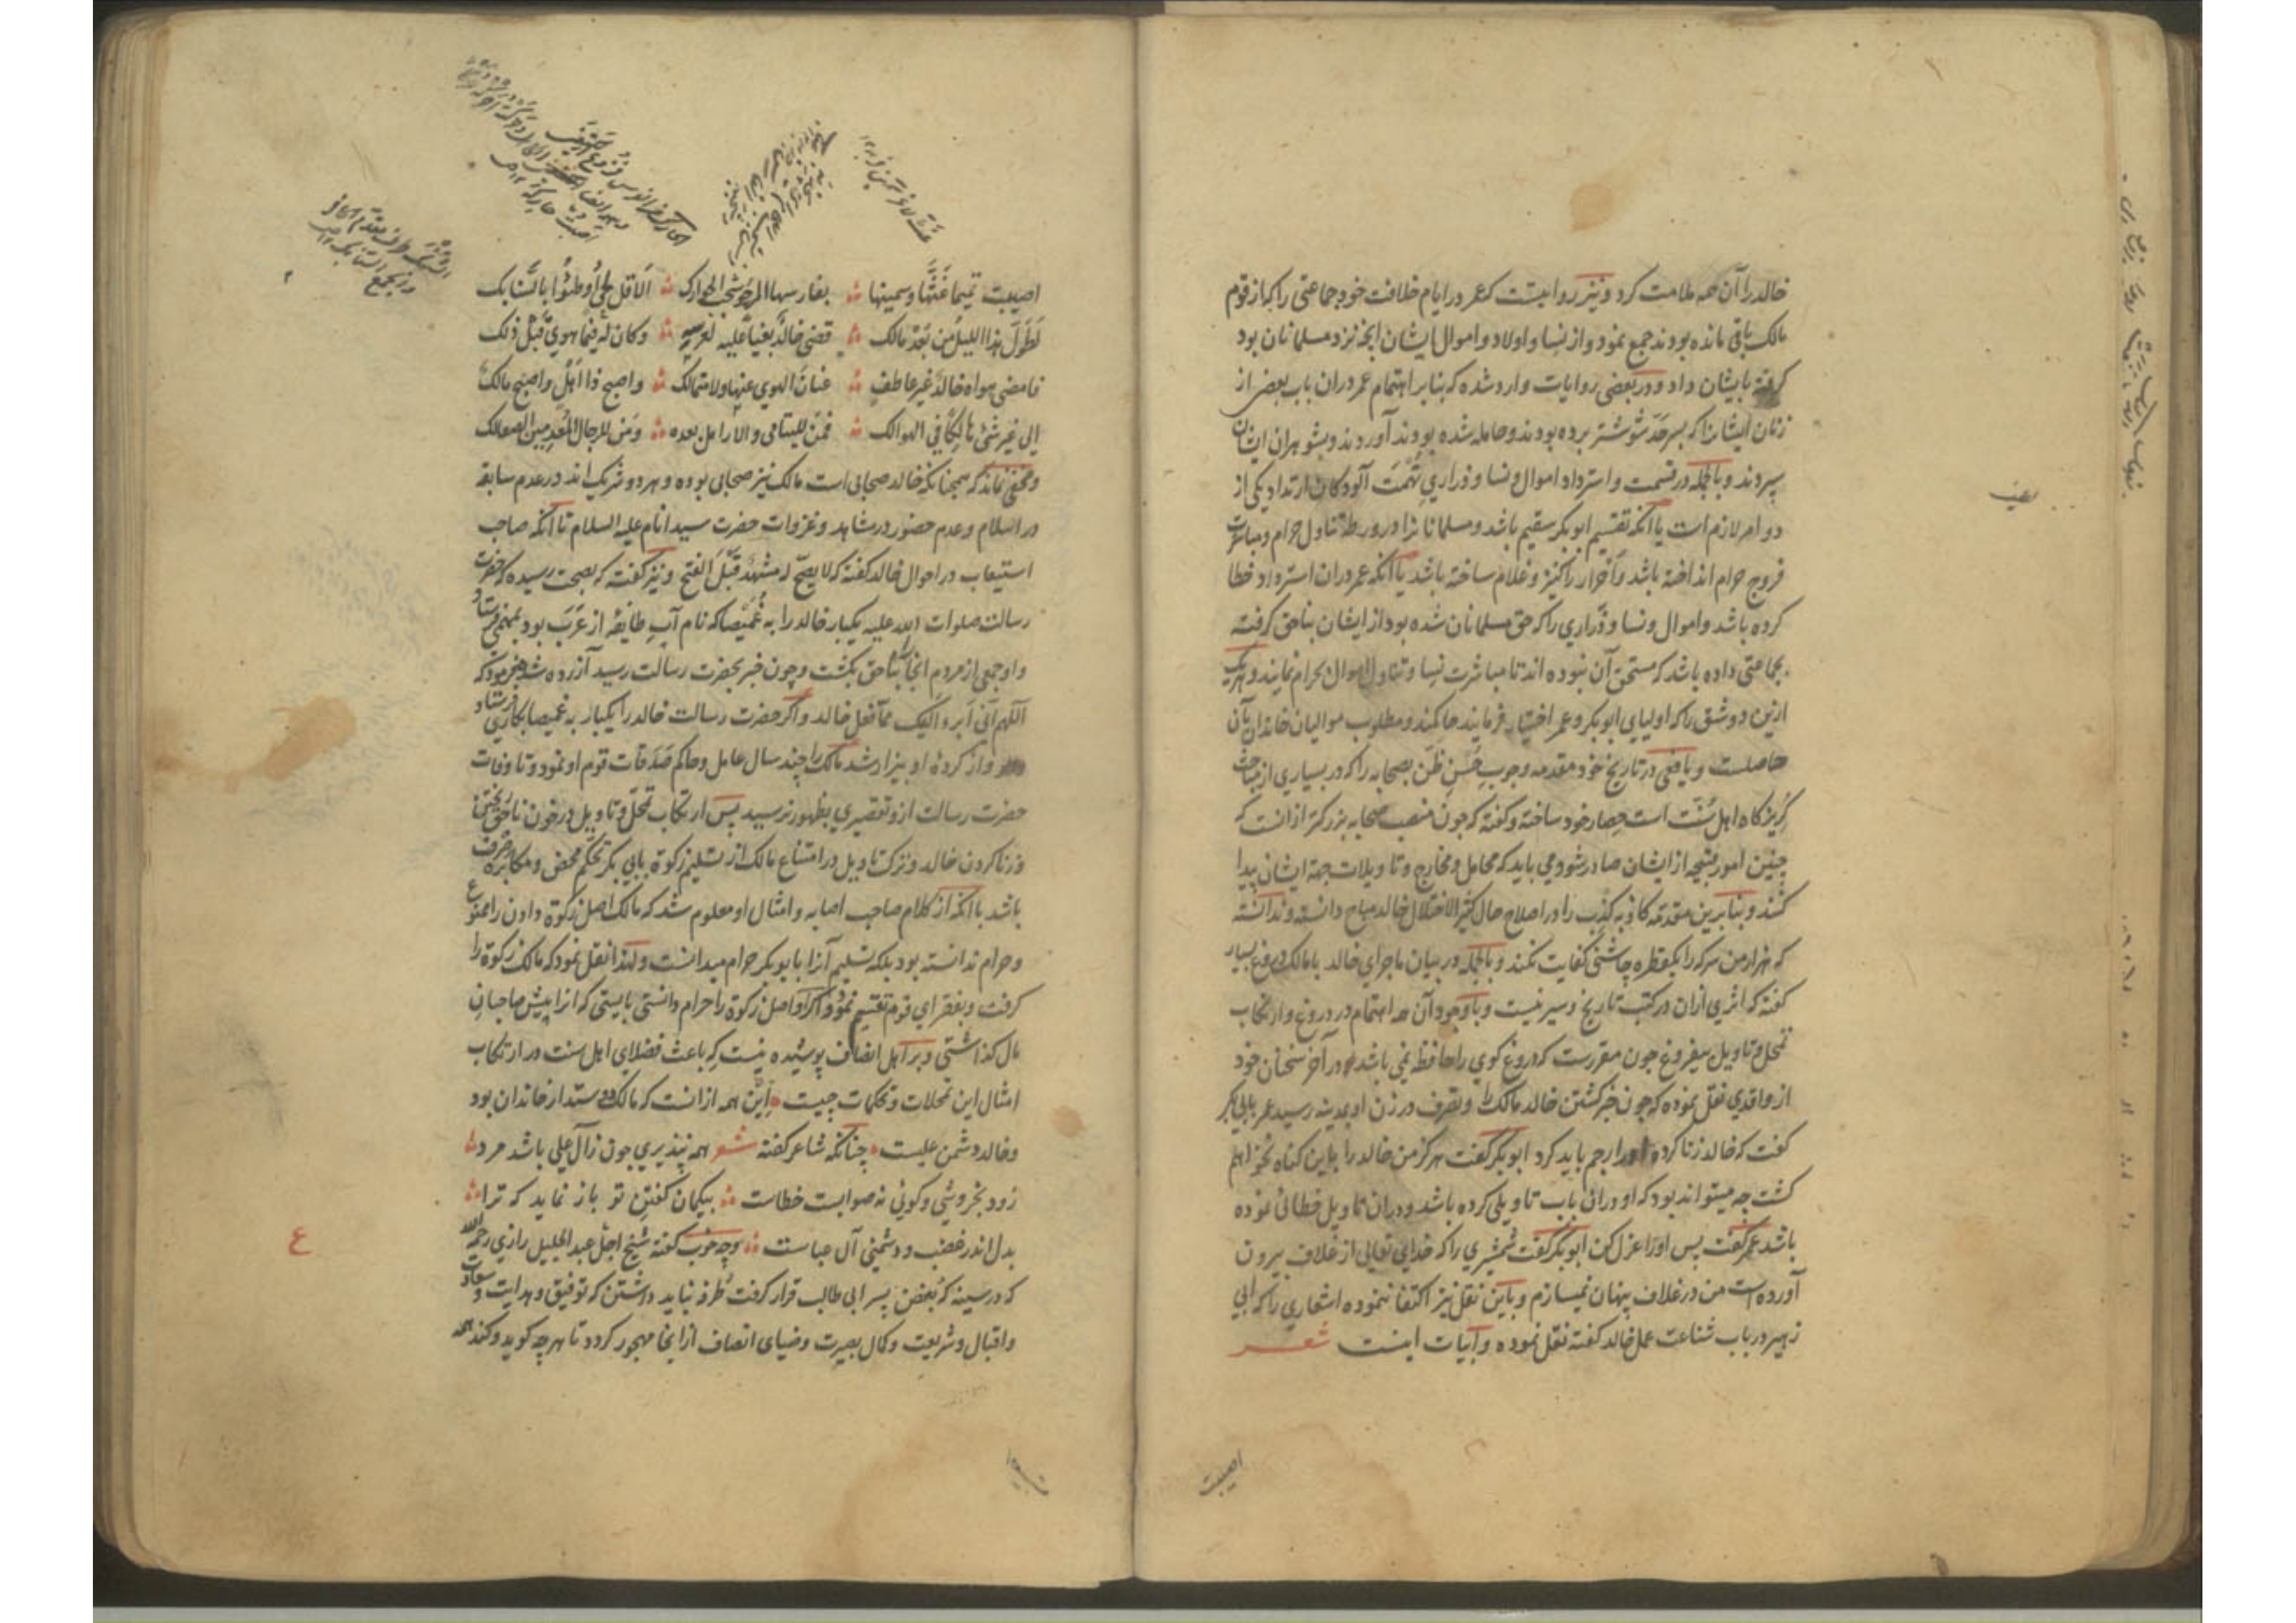 خالد را آن همه ملامت کرد و نیز روا نیست که عمر در ایام خلافت خود جماعتی را که از قوم
مالک باقی مانده بودند جمع نمود و از نسا و اولاد و اموال ایشان انچه نزد مسلمانان بود
گرفته بایشان داد و در بعضی روایات وارد شده که بنابر اهتمام عمر دران باب بعضی از
زنان ایشانرا که بسرحد شوشتر برده بودند و حامله شده بودند آوردند و بشوهران ایشان
سپردند و بالجمله در قسمت و استرداد اموال و نسا و ذراري تهمت آلودگان ارتداد یکی از
دو امر لازم است یا آنکه تقسیم ابوبکر سقیم باشد و مسلمانانرا در ورطه تناول حرام و مباشرت
فروج حرام انداخته باشد و احرار را کنیز و غلام ساخته باشد یا آنکه عمر دران استرداد خطا
کرده باشد و اموال و نسا و ذراري را که حق مسلمانان شده بود از ایشان بناحق گرفته
بجماعتی داده باشد که مستحق آن نبوده اند تا مباشرت نسا و تناول اموال بحرام نمایند و هریک
ازین دو شق را که اولیاي ابوبکر و عمر اختیار فرمایند حاکمند و مطلوب موالیان خاندان بآن
حاصلست و یافعی در تاریخ خود مقدمه وجوب حسن ظن بصحابه را که در بسیاري از مباحث
گریزگاه اهل سنت است حصار خود ساخته و گفته که چون منصب صحابه بزرگتر ازانست که
چنین امور قبیحه از ایشان صادر شود می باید که محامل و مخارج و تاویلات جهة ایشان پیدا
کنند و بنابرین مقدمه کاذبه کذب را در اصلاح حال کثیر الاختلال خالد مباح دانسته و ندانسته
که هزار من سرکه را یکقطره چاشنی کفایت نکند و بالجمله در بیان ماجراي خالد با مالک دروغ بسیار
گفته که اثري ازان در کتب تاریخ و سیر نیست و با وجود آن همه اهتمام در دروغ و ارتکاب
تمحل و تاویل بیفروغ چون مقررست که دروغ گوي را حافظه نمی باشد در آخر سخنان خود
از واقدي نقل نموده که چون خبر کشتن خالد مالک را و تصرف در زن او بمدینه رسید عمر بابی بکر
گفت که خالد زنا کرده اورا رجم باید کرد ابوبکر گفت هرگز من خالد را باین گناه نخواهم
کشت چه میتواند بود که او دران باب تاویلی کرده باشد و دران تاویل خطائی نموده
باشد عمر گفت پس اورا عزل کن ابوبکر گفت شمشیري را که خداي تعالی از غلاف بیرون
آورده است من در غلاف پنهان نمیسازم و باین نقل نیز اکتفا ننموده اشعاري را که ابی
زهیر در باب شناعت عمل خالد گفته نقل نموده و ابیات اینست شعر
اصیبت
اصیبت تمیما غثها و سمینها بفارسها المرجو تحت الحوارک الا قل لحی اوطئوا بالسنابک
تطول هذا اللیل من بعد مالک قضی خالد بغیا علیه لعرسه و کان له فیما هوي قبل ذلک
فامضی هواه خالد غیر عاطف عنان الهوي عنها ولا متمالک و اصبح ذا اهل و اصبح مالک
الی غیر شئ هالکا فی الهوالک فمن للیتامی و الارامل بعده و من للرجال المعدمین الصعالک
و مخفی نماند که همچنانکه خالد صحابی است مالک نیز صحابی بوده و هر دو شریک اند در عدم سابقه
در اسلام و عدم حضور در مشاهد و غزوات حضرت سید انام علیه السلام تا آنکه صاحب
استیعاب در احوال خالد گفته که لا یصح له مشهد قبل الفتح و نیز گفته که بصحت رسیده که حضرت
رسالت صلوات الله علیه یکبار خالد را به غمیصا که نام آب طایفه از عرب بود بمهمی فرستاد
و او جمعی از مردم آنجا بناحق بکشت و چون خبر بحضرت رسالت رسید آزرده شد و فرمود که
اللهم انی ابرء الیک مما فعل خالد و اگر حضرت رسالت خالد را یکبار به غمیصا بکاري فرستاد
و از کرده او بیزار شد مالک را چند سال عامل و حاکم صدقات قوم او نمود و تا وفات
حضرت رسالت ازو تقصیري بظهور نرسید پس ارتکاب تمحل و تاویل در خون ناحق ریختن
و زنا کردن خالد و ترک تاویل در امتناع مالک از تسلیم زکوة بابی بکر تحکم محض و مکابره صرف
باشد با آنکه از کلام صاحب اصابه و امثال او معلوم شد که مالک اصل زکوة دادن را ممنوع
و حرام ندانسته بود بلکه تسلیم آنرا بابوبکر حرام میدانست و لهذا نقل نمود که مالک زکوة را
گرفت و بفقراي قوم تقسیم نمود و اگر او اصل زکوة را حرام دانستی بایستی که انرا پیش صاحبان
مال گذاشتی و بر اهل انصاف پوشیده نیست که باعث فضلاي اهل سنت در ارتکاب
امثال این تمحلات و تحکمات چیست این همه ازانست که مالک دوستدار خاندان بود
و خالد دشمن علیست چنانکه شاعر گفته شعر همه بپذیري چون زآل علی باشد مرد
زود بخروشی و گوئی نه صوابست خطاست بیگمان گفتن تو باز نماید که ترا
بدل اندر غضب و دشمنی آل عباست و چه خوب گفته شیخ اجل عبد الجلیل رازي رحمه الله
که در سینه که بغض پسر ابی طالب قرار گرفت طرفه نباید داشتن که توفیق و هدایت و سعادت
و اقبال و شریعت و کمال بصیرت و ضیاي انصاف ازانجا مهجور گردد تا هرچه گوید و کند همه